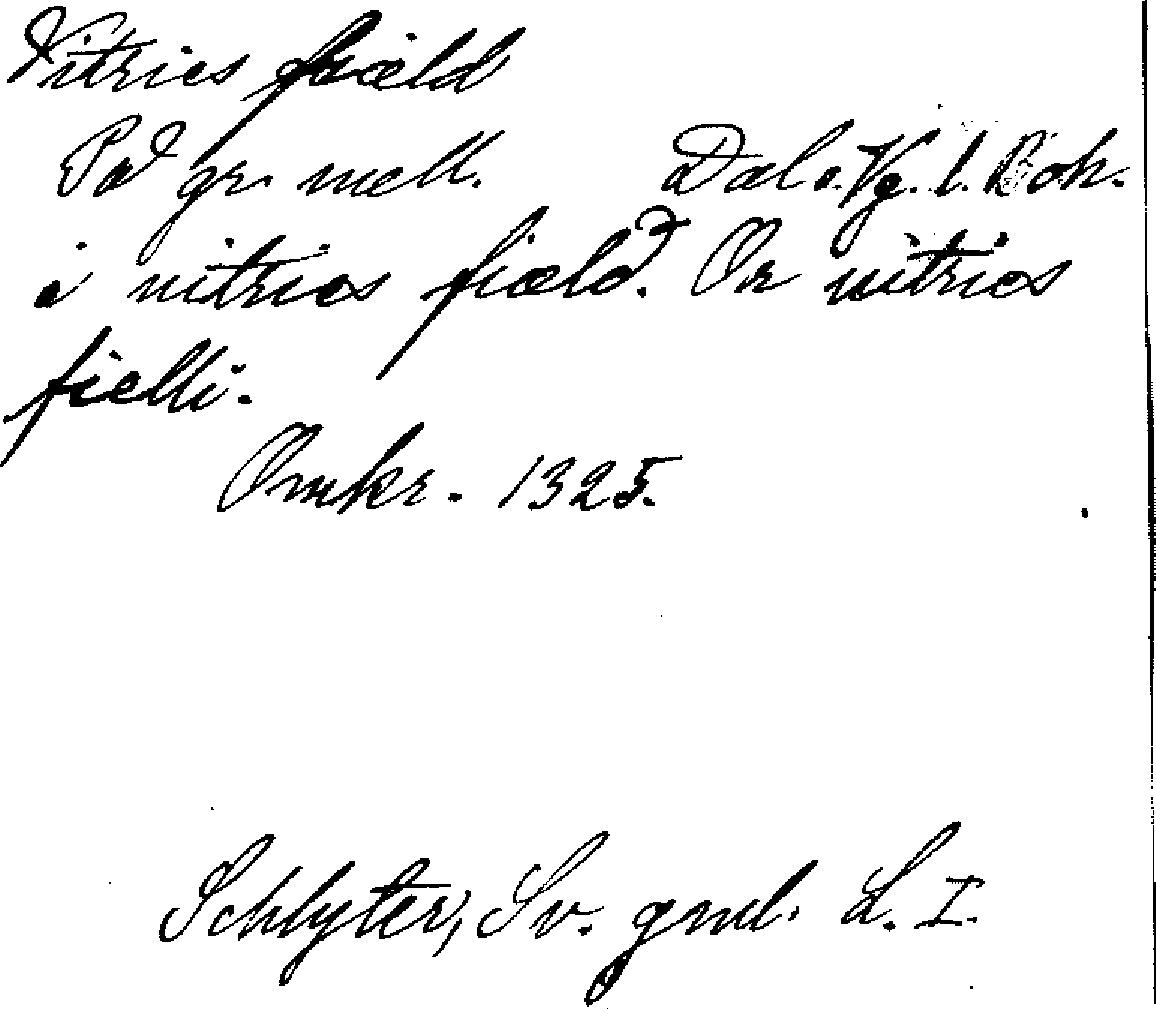 Vitrics fiæld
På gr. mell. Dal o. Vg. l. Boh.
i vitrics fiæld. Or vitrics
fielli.
Omkr. 1325.
Schlyter, Sv. gml. L. I.